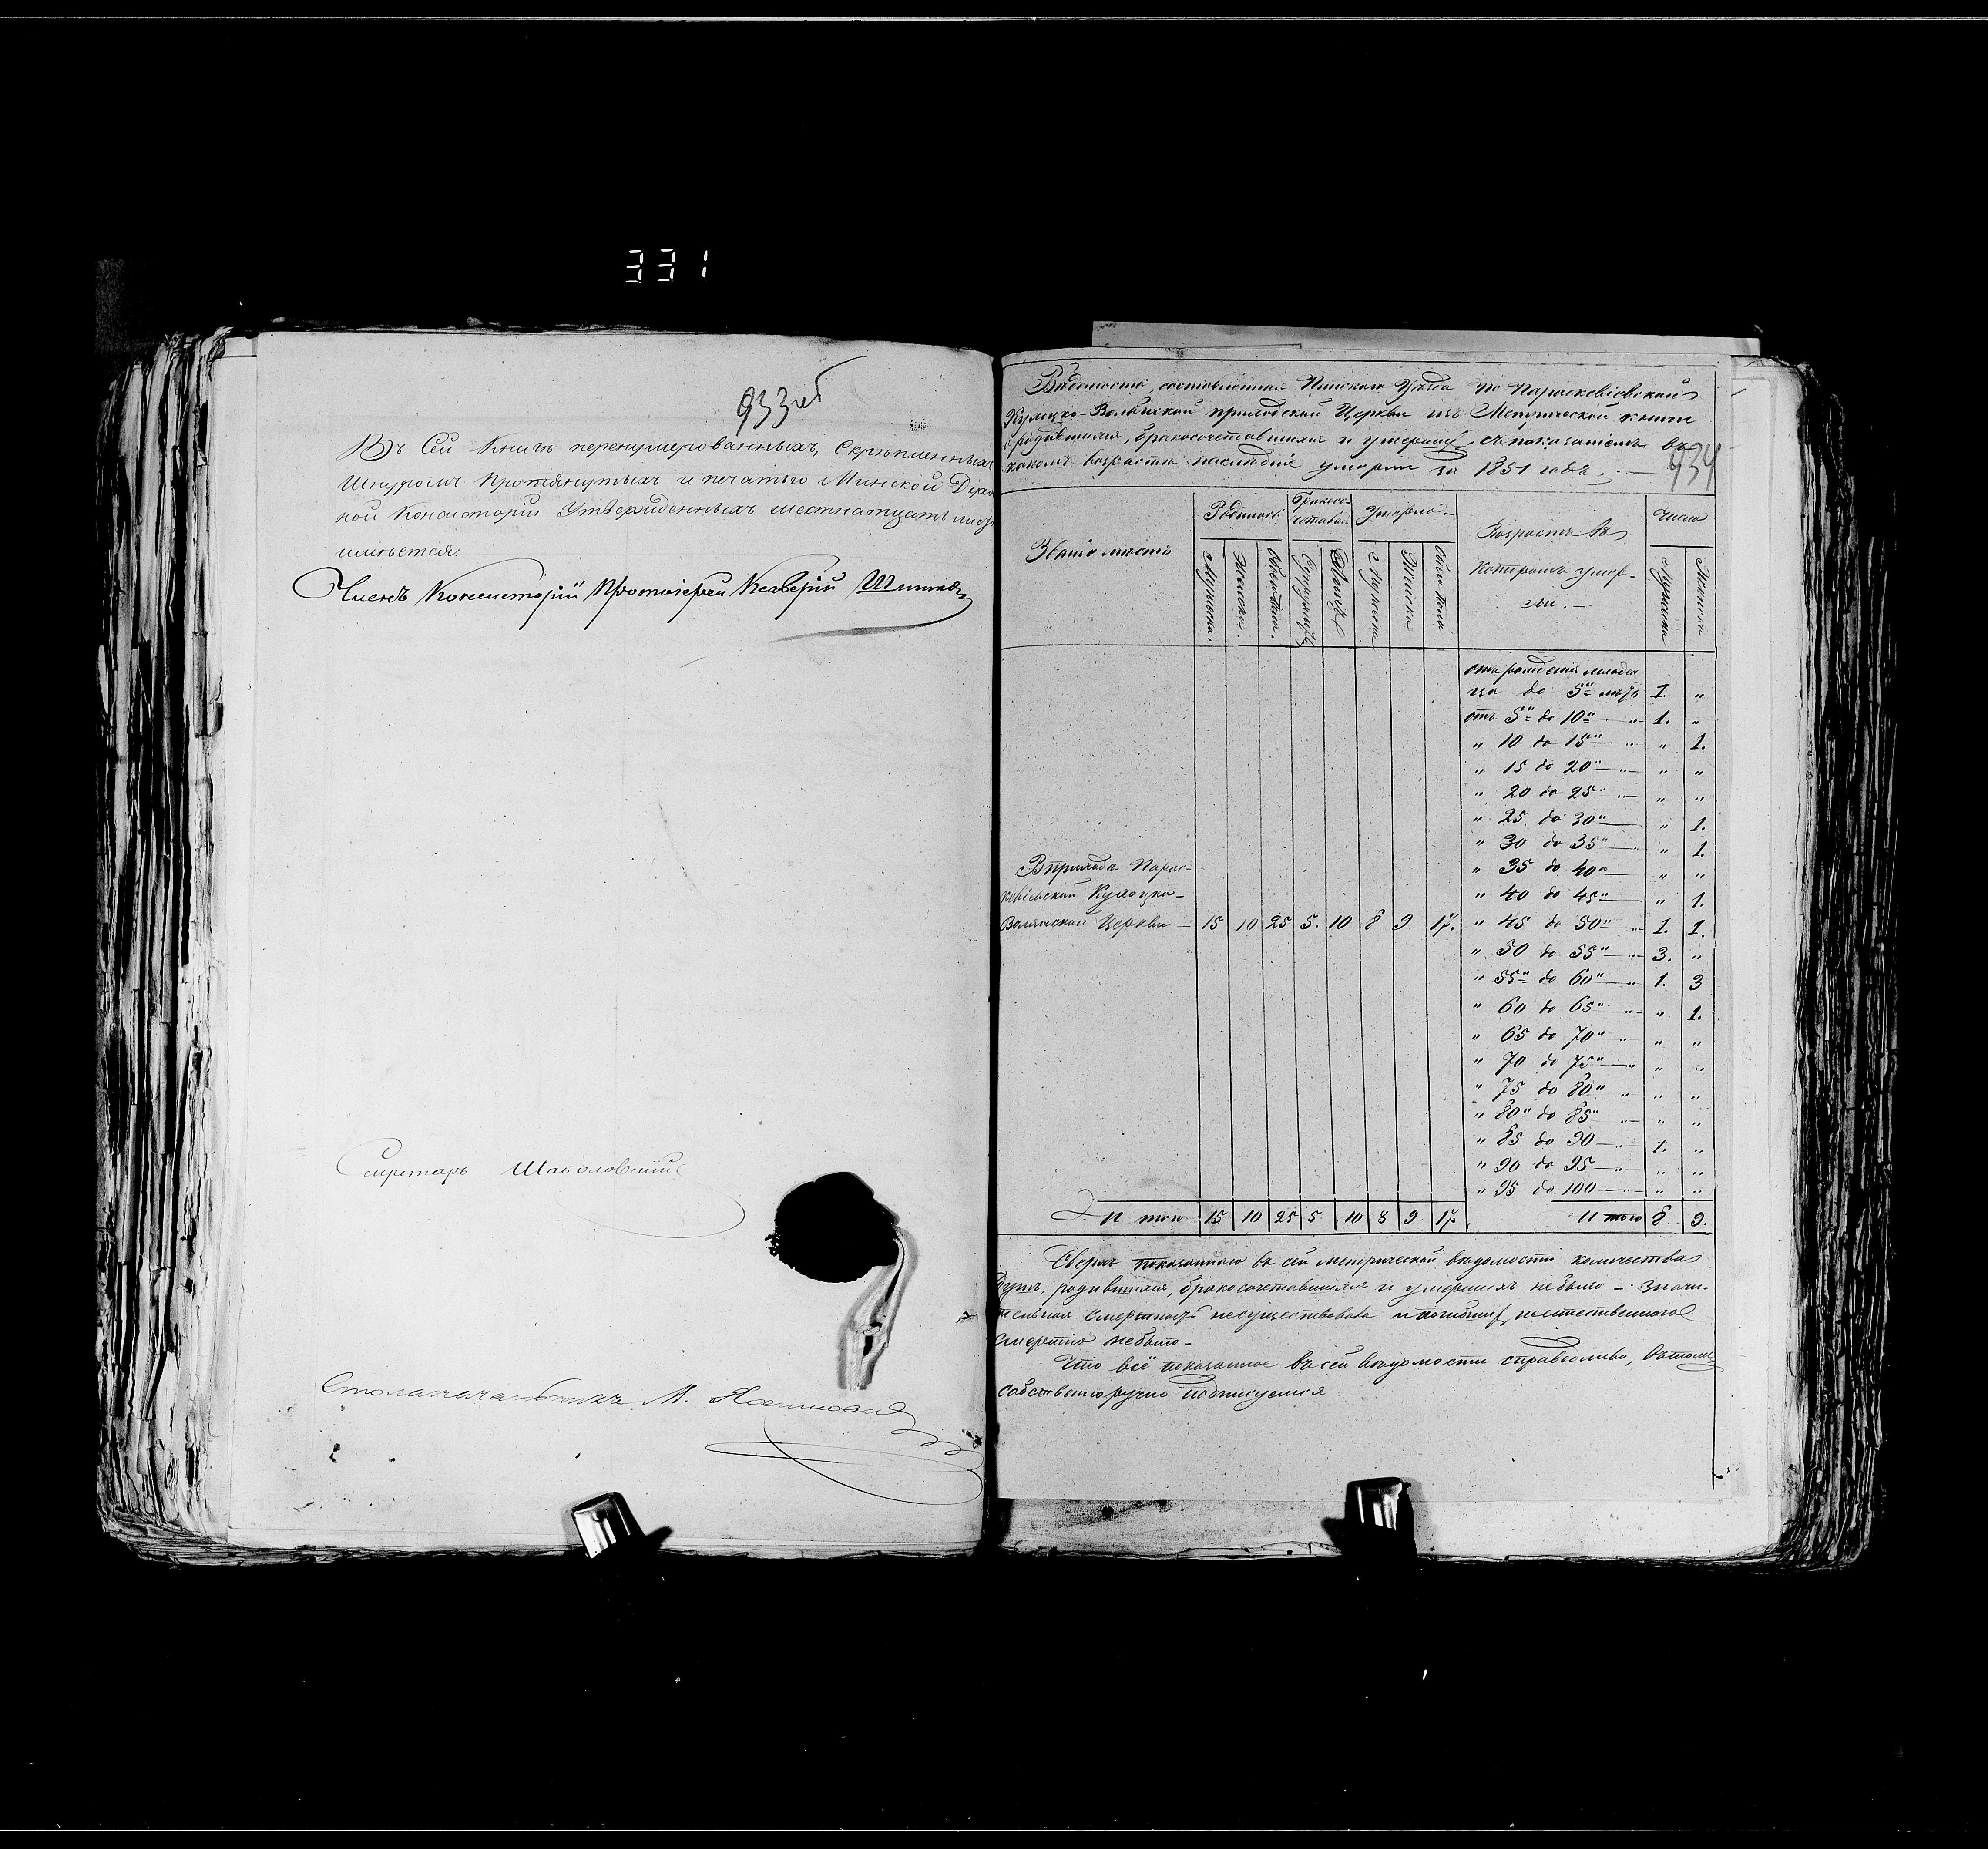 331
933 об
Въ Сей Книгѣ перенумерованныхъ, Скрѣпленныхъ
Шнуромъ Протянутыхъ и печатью Минской Духов
ной Консисторіи Утвержденныхъ шестнатцать листовъ
имѣется.
Членъ Консисторіи Протоіерей Ксаверій
Секретарь
Столоначальникъ М.
934
Вѣдомость, составленная Пинскаго Уѣзда по Параскевіевской
приходской Церкви изъ Метрической книги
о родившихся, бракосочетавшихся и умершихъ, съ показаніемъ въ
какомъ возрастѣ послѣдніе умерли за 1851 годъ. —
Званіе мѣстъ
Родилось
Бракосо-
четавш.
Умерло. —
Возрастъ въ
которомъ умер-
ли. —
Число
Мужеска.
Женска.
Обоего пола.
Супружествъ
Лицъ
Мужеска
Женска
Обоего пола
Мужеска
Женска
отъ рожденія младен
ца до 5ти лѣтъ 1. „
отъ 5ти до 10ти — „ 1. „
„ 10 до 15ти — „ „ 1.
„ 15 до 20ти — „ „ „
„ 20 до 25ти — „ „
„ 25 до 30ти — „ 1.
„ 30 до 35ти — „ „ 1.
„ 35 до 40ти — „ „
„ 40 до 45ти — „ 1.
Въ приходѣ Парас-
кевіевской Кухоцко-
Вольской Церкви — 15 10 25 5. 10 8 9 17. „ 45 до 50ти — „ 1. 1.
„ 50 до 55ти — „ 3. „
„ 55ти до 60ти — „ 1. 3
„ 60 до 65ти — „ „ 1.
„ 65 до 70ти „ „ „
„ 70 до 75ти — „ „ „
„ 75 до 80ти „ „ „
„ 80ти до 85ти — „ „ „
„ 85 до 90 — „ 1. „
„ 90 до 95 — „ „ „
„ 95 до 100 — „ „ „
И того 15 10 25 5 10 8 9 17 И того 8. 9.
Сверхъ показаннаго въ сей метрической вѣдомости количества
душъ, родившихся, бракосочетавшихся и умершихъ небыло — значи-
тельная смертность несуществовала и погибшихъ неестественною
смертію небыло. —
Что всё показанное въ сей вѣдомости справедливо, въ томъ
собственноручно подписуемся